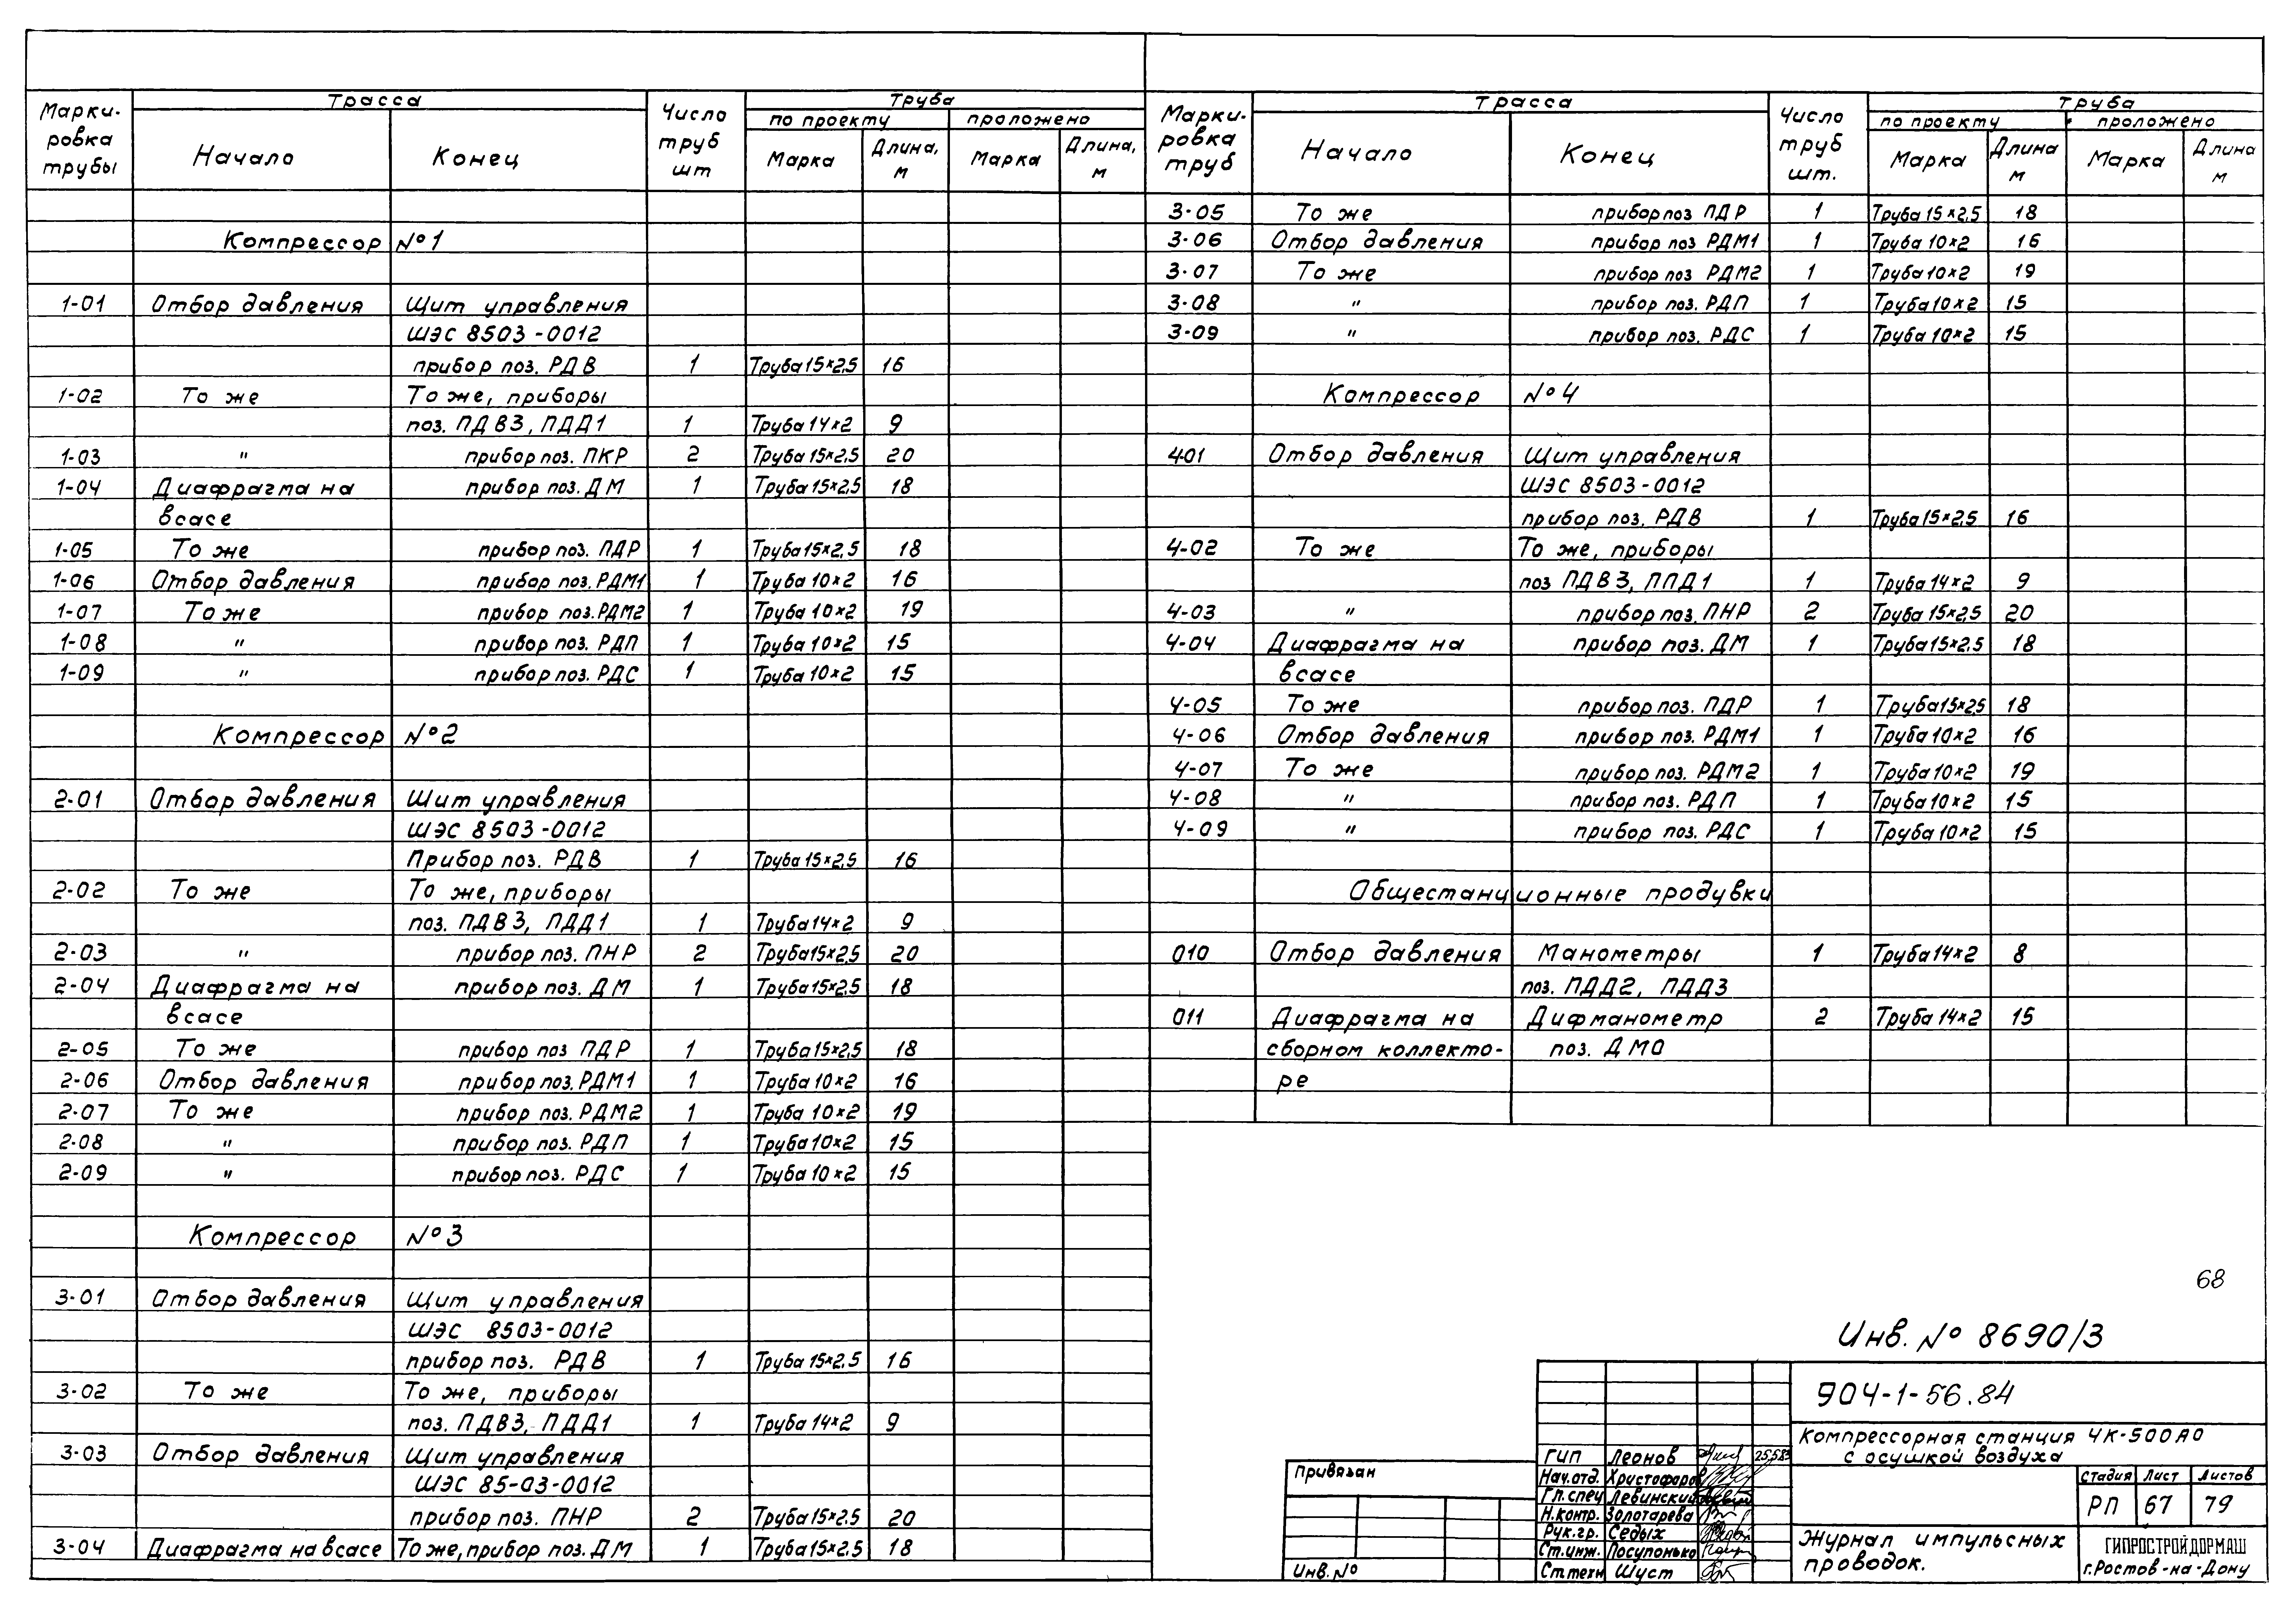 Марки-
ровка
трубы
Трасса
Начало
Конец
Число
труб
шт
Труба
по проекту
проложено
Марка
Длина,
м
Марка
Длина,
м
Компрессор №1
1-01 Отбор давления Щит управления
ШЭС 8503-0012
прибор поз. РДВ 1 Труба 15×2,5 16
1-02 То же То же, приборы
поз. ПДВ3, ПДД1 1 Труба 14×2 9
1-03 " прибор поз. ПКР 2 Труба 15×2,5 20
1-04 Диафрагма на прибор поз. ДМ 1 Труба 15×2,5 18
всасе
1-05 То же прибор поз. ПДР 1 Труба 15×2,5 18
1-06 Отбор давления прибор поз. РДМ1 1 Труба 10×2 16
1-07 То же прибор поз. РДМ2 1 Труба 10×2 19
1-08 " прибор поз. РДП 1 Труба 10×2 15
1-09 " прибор поз. РДС 1 Труба 10×2 15
Компрессор №2
2-01 Отбор давления Шит управления
ШЭС 8503-0012
Прибор поз. РДВ 1 Труба 15×2,5 16
2-02 То же То же, приборы
поз. ПДВ3, ПДД1 1 Труба 14×2 9
2-03 " прибор поз. ПНР 2 Труба 15×2,5 20
2-04 Диафрагма на прибор поз. ДМ 1 Труба 15×2,5 18
всасе
2-05 То же прибор поз ПДР 1 Труба 15×2,5 18
2-06 Отбор давления прибор поз. РДМ1 1 Труба 10×2 16
2-07 То же прибор поз. РДМ2 1 Труба 10×2 19
2-08 " прибор поз. РДП 1 Труба 10×2 15
2-09 " прибор поз. РДС 1 Труба 10×2 15
Компрессор №3
3-01 Отбор давления Щит управления
ШЭС 8503-0012
прибор поз. РДВ 1 Труба 15×2,5 16
3-02 То же То же, приборы
поз. ПДВ3, ПДД1 1 Труба 14×2 9
3-03 Отбор давления Щит управления
ШЭС 85-03-0012
прибор поз. ПНР 2 Труба 15×2,5 20
3-04 Диафрагма на всасе То же, прибор поз. ДМ 1 Труба 15×2,5 18
Марки-
ровка
труб
Трасса
Начало
Конец
Число
труб
шт.
Труба
по проекту
проложено
Марка
Длина
м
Марка
Длина
м
3-05 То же прибор поз ПДР 1 Труба 15×2,5 18
3-06 Отбор давления прибор поз РДМ1 1 Труба 10×2 16
3-07 То же прибор поз РДМ2 1 Труба 10×2 19
3-08 " прибор поз. РДП 1 Труба 10×2 15
3-09 " прибор поз. РДС 1 Труба 10×2 15
Компрессор №4
401 Отбор давления Щит управления
ШЭС 8503-0012
прибор поз. РДВ 1 Труба 15×2,5 16
4-02 То же То же, приборы
поз ПДВ3, ППД1 1 Труба 14×2 9
4-03 " прибор поз. ПНР 2 Труба 15×2,5 20
4-04 Диафрагма на прибор поз. ДМ 1 Труба 15×2,5 18
всасе
4-05 То же прибор поз. ПДР 1 Труба 15×2,5 18
4-06 Отбор давления прибор поз. РДМ1 1 Труба 10×2 16
4-07 То же прибор поз. РДМ2 1 Труба 10×2 19
4-08 " прибор поз. РДП 1 Труба 10×2 15
4-09 " прибор поз. РДС 1 Труба 10×2 15
Общестанционные продувки
010 Отбор давления Манометры 1 Труба 14×2 8
поз. ПДД2, ПДД3
011 Диафрагма на Дифманометр 2 Труба 14×2 15
сборном коллекто- поз. ДМО
ре
68
Инв. № 8690/3
904-1-56.84
Компрессорная станция 4К-500АО
с осушкой воздуха
Стадия Лист Листов
РП 67 79
Журнал импульсных
проводок.
ГИПРОСТРОЙДОРМАШ
г. Ростов-на-Дону
Привязан
Инв. №
ГИП Леонов
Нач.отд. Христофоров
Гл.спец Левинский
Н.контр. Золотарева
Рук.гр. Седых
Ст.инж. Посупонько
Ст.техн Шуст